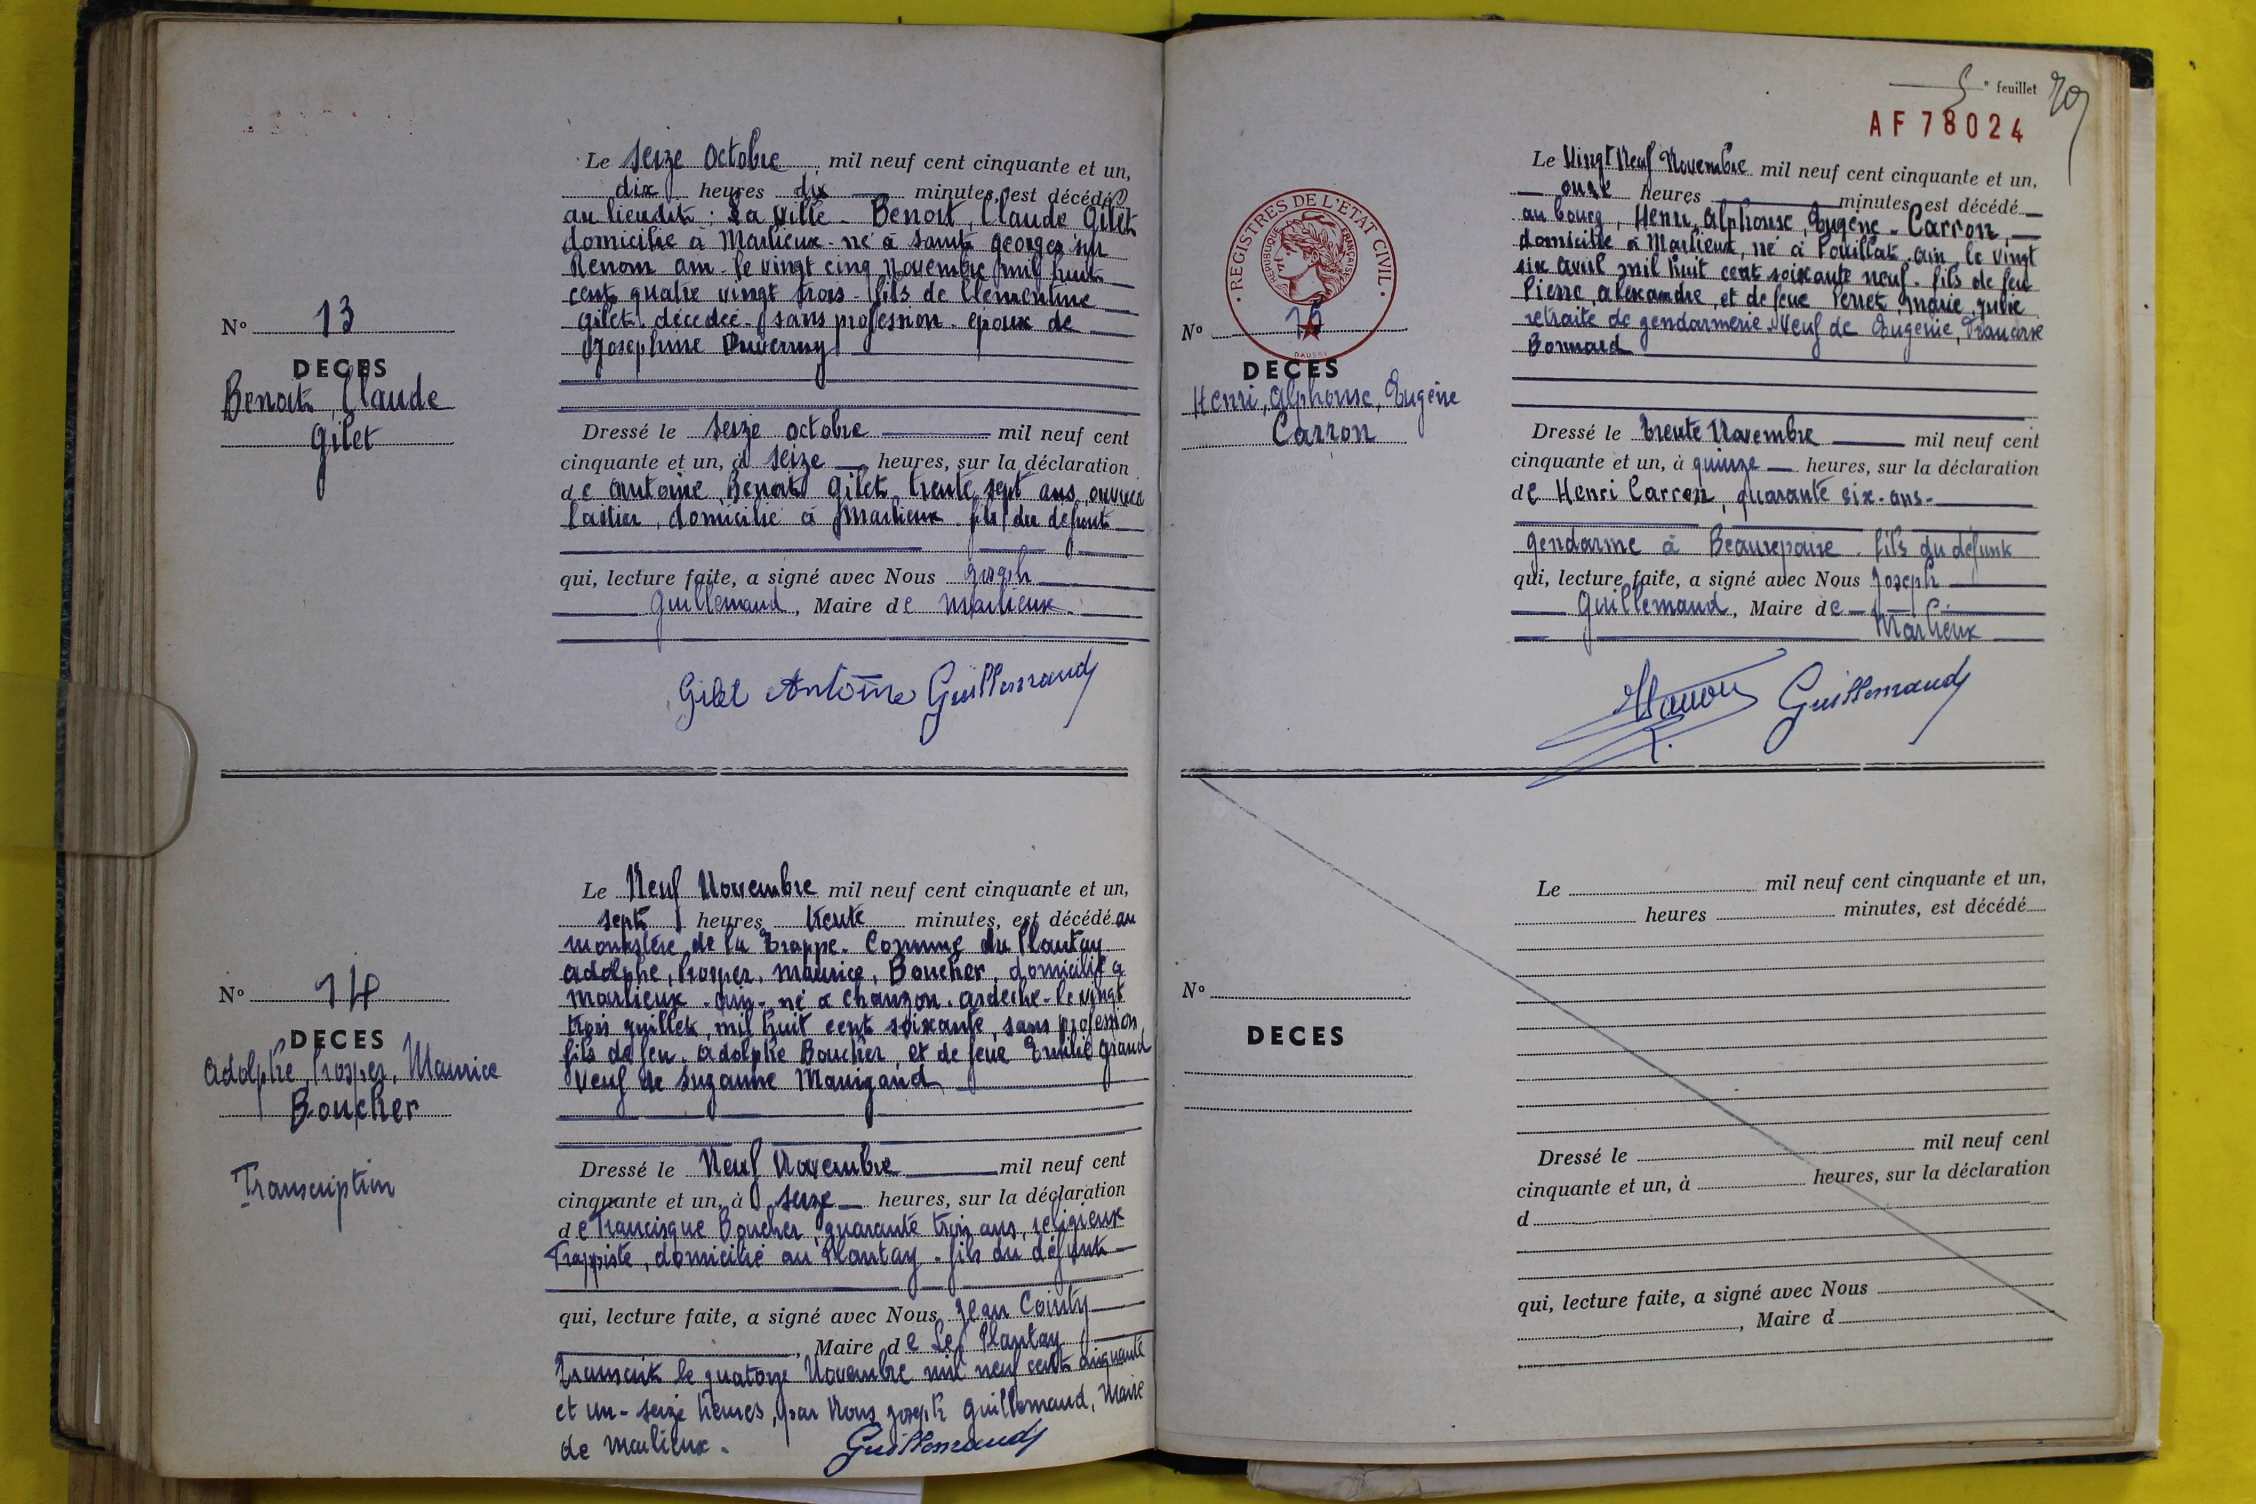 Le seize octobre mil neuf cent cinquante et un,
dix heures dix minutes, est décédé
au lieudit : La ville - Benoit, Claude Gilet
domicilié à Marlieux - né à saint georges sur
Renom ain - le vingt cinq Novembre mil huit
cent quatre vingt trois - fils de Clementine
Gilet décedée - sans profession - époux de
Josephine Duvernay
N° 13
DECES
Benoit, Claude
Gilet
Dressé le seize octobre mil neuf cent
cinquante et un, à seize heures, sur la déclaration
de Antoine, Benoit Gilet, trente sept ans, ouvrier
laitier, domicilié à Marlieux - fils du défunt
qui, lecture faite, a signé avec Nous Joseph
Guillemaud, Maire de Marlieux
Gilet Antoine Guillemaud
Le Neuf Novembre mil neuf cent cinquante et un,
sept heures trente minutes, est décédé au
monastère de la Trappe - Commune du Plantay
Adolphe, Prosper, Maurice, Boucher, domicilié a
Marlieux - ain - né a Chauzon - ardèche - le vingt
trois juillet, mil huit cent soixante, sans profession
fils de feu - Adolphe Boucher et de feue Emilie Grand
Veuf de Suzanne Manigand
N° 14
DECES
Adolphe, Prosper, Maurice
Boucher
Transcription
Dressé le Neuf Novembre mil neuf cent
cinquante et un, à seize heures, sur la déclaration
de Francisque Boucher, quarante trois ans, religieux
Trappiste, domicilié au Plantay - fils du défunt
qui, lecture faite, a signé avec Nous Jean Cointy
, Maire de Le Plantay
Transcrit le quatorze Novembre mil neuf cent cinquante
et un - seize heures, par Nous Joseph Guillemaud, Maire
de Marlieux.
Guillemaud
5 e feuillet
AF78024
REGISTRES DE L'ETAT CIVIL
REPUBLIQUE FRANÇAISE
Le Vingt Neuf Novembre mil neuf cent cinquante et un,
onze heures minutes, est décédé
au bourg, Henri, Alphonse, Eugène - Carron,
domicilié à Marlieux, né à Pouillat - ain, le vingt
six avril mil huit cent soixante neuf - fils de feu
Pierre, Alexandre, et de feue Perret, Marie, Julie
retraité de gendarmerie - Veuf de Eugenie, Francoise
Bonnard
N° 15
DECES
Henri, Alphonse, Eugène
Carron
Dressé le Trente Novembre mil neuf cent
cinquante et un, à quinze heures, sur la déclaration
de Henri Carron, quarante six - ans -
gendarme à Beaurepaire - fils du défunt
qui, lecture faite, a signé avec Nous Joseph
Guillemaud, Maire de
Marlieux
Guillemaud
Le mil neuf cent cinquante et un,
heures minutes, est décédé
N°
DECES
Dressé le mil neuf cent
cinquante et un, à heures, sur la déclaration
d
qui, lecture faite, a signé avec Nous
, Maire d